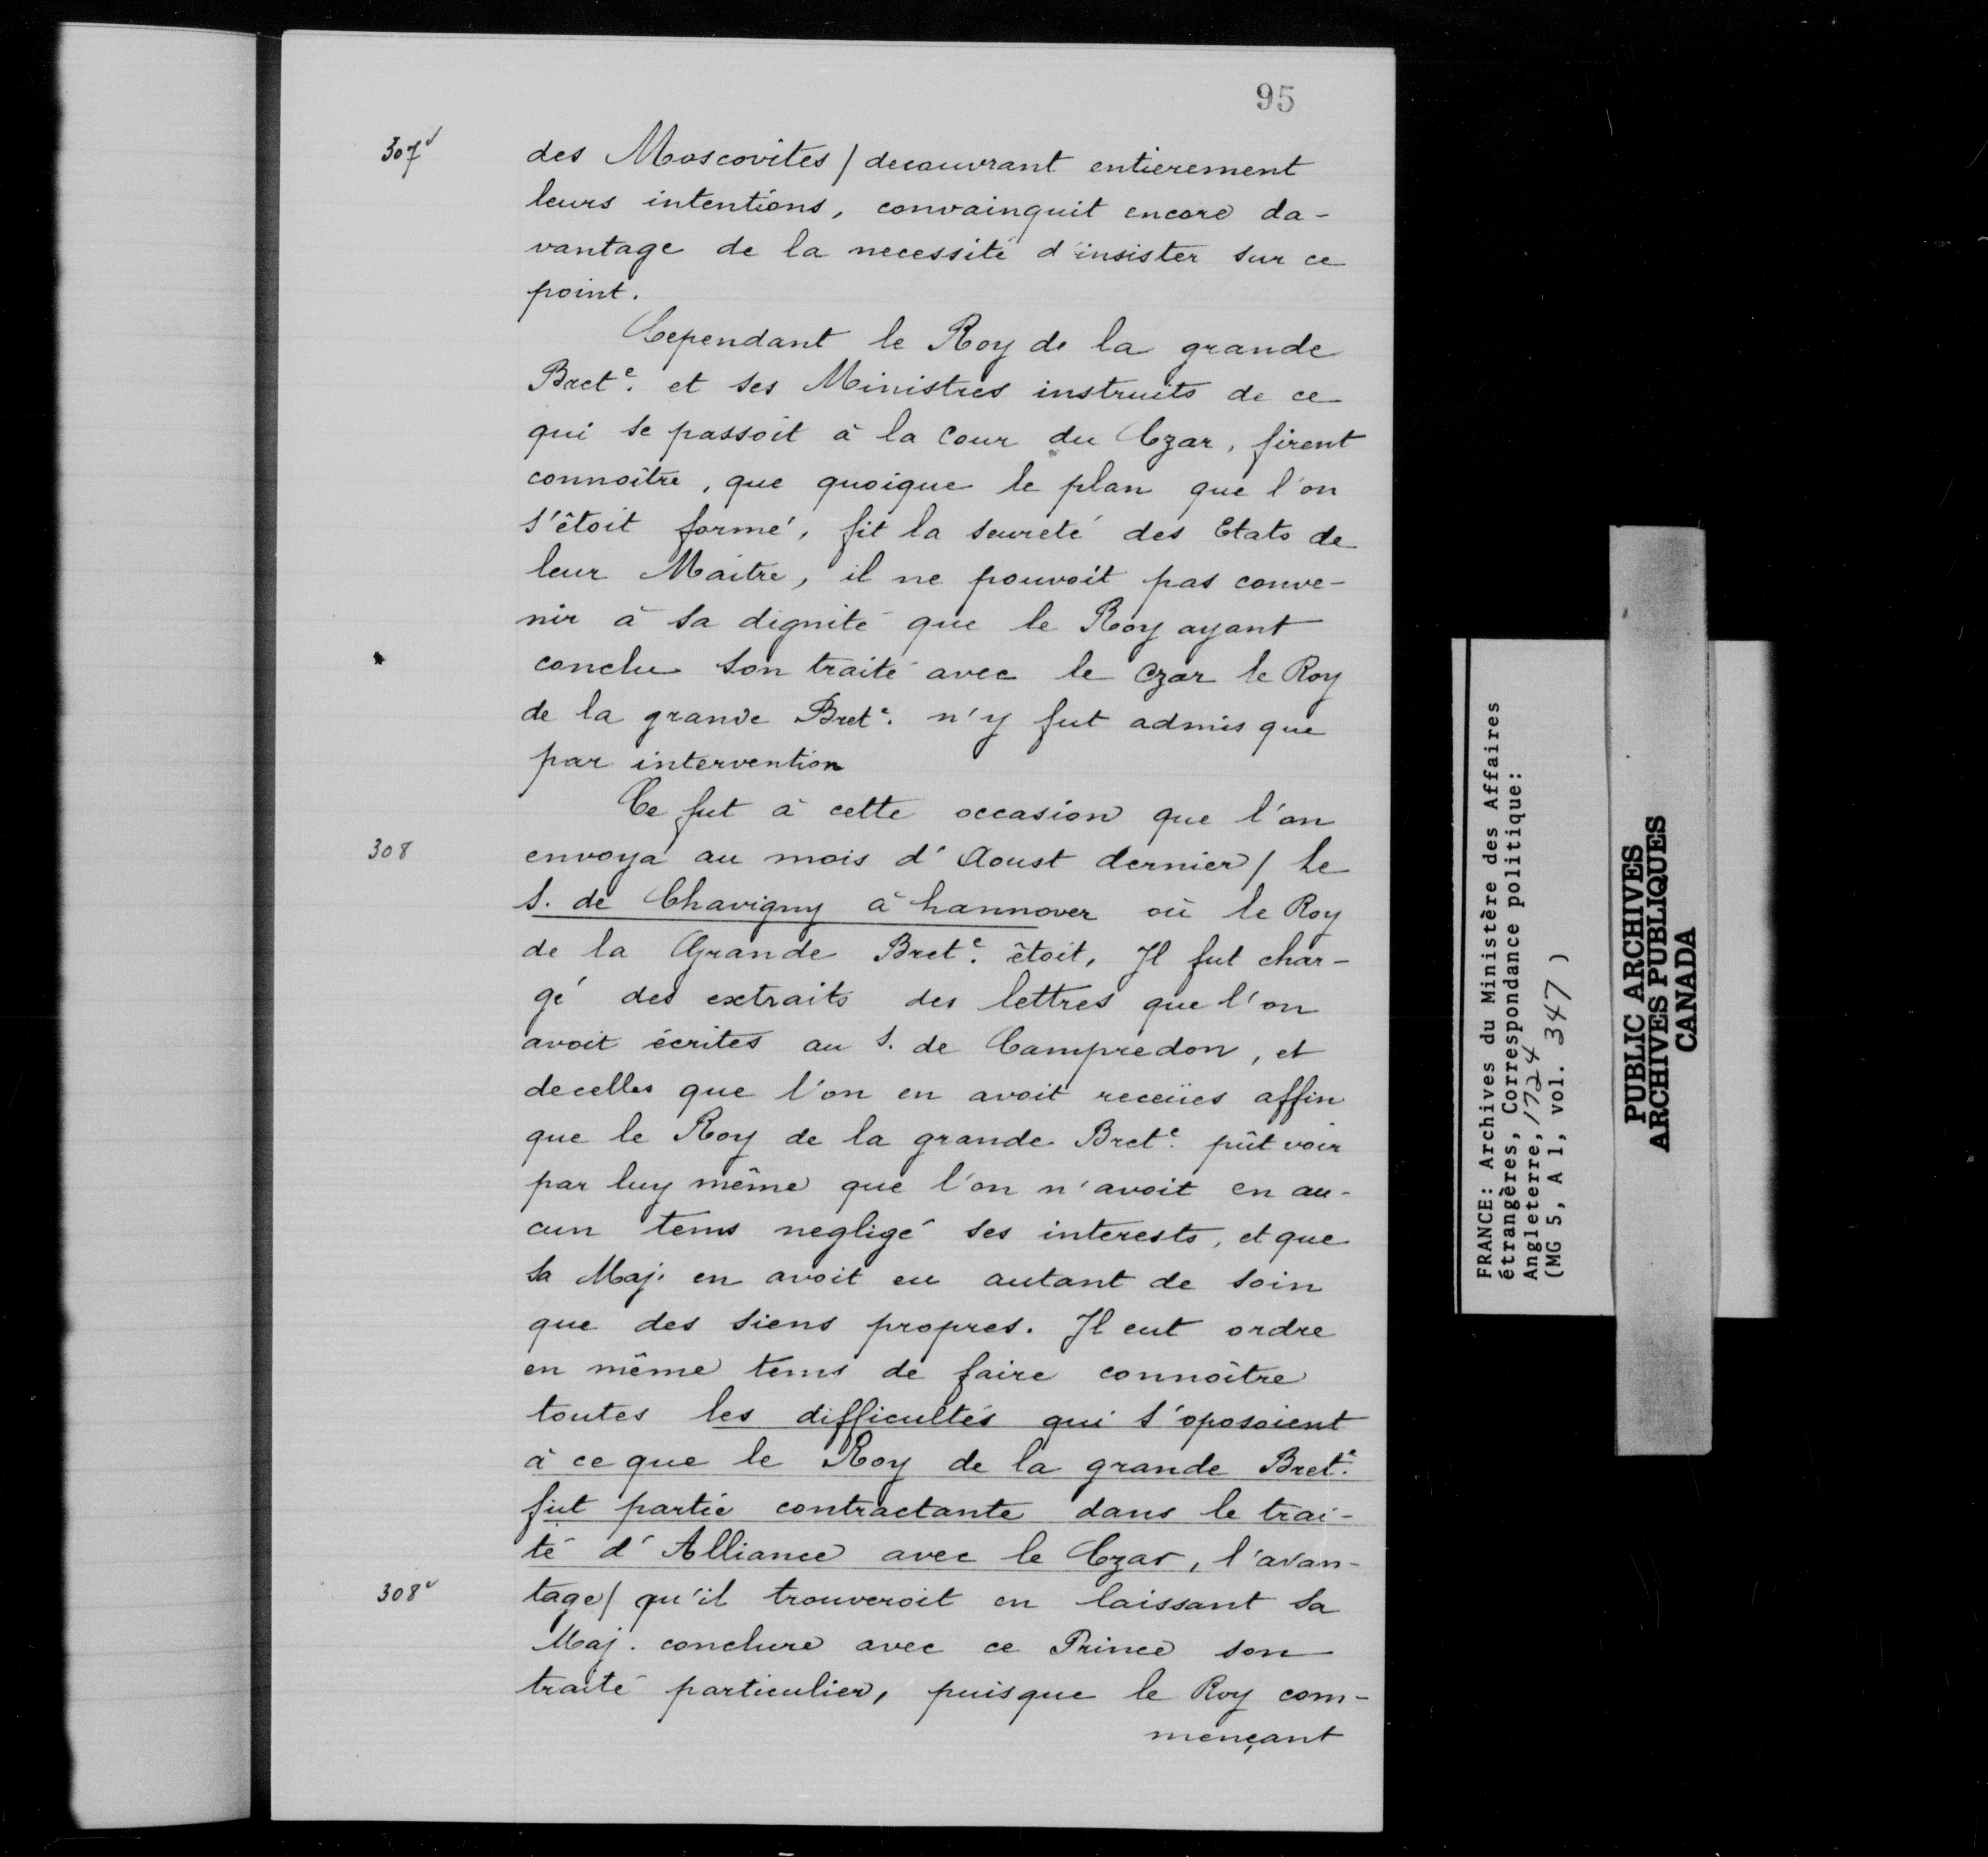 95
307v des Moscovites / decouvrant entierement
leurs intentions, convainquit encore da-
vantage de la necessité d'insister sur ce
point.
Cependant le Roy de la grande
Brete. et ses Ministres instruits de ce
qui se passoit à la Cour du Czar, firent
connoître, que quoique le plan que l'on
s'êtoit formé, fit la seureté des Etats de
leur Maitre, il ne pouvoit pas conve-
nir à sa dignité que le Roy ayant
conclu son traité avec le Czar le Roy
de la grande Brete. n'y fut admis que
par intervention
Ce fut à cette occasion que l'on
308 envoya au mois d'Aoust dernier / le
S. de Chavigny à hannover où le Roy
de la Grande Brete. êtoit, Il fut char-
gé des extraits des lettres que l'on
avoit écrites au S. de Campredon, et
decelles que l'on en avoit receües affin
que le Roy de la grande Brete. pût voir
par luy même que l'on n'avoit en au-
cun tems negligé ses interests, et que
sa Maj. en avoit eu autant de soin
que des siens propres. Il eut ordre
en même tems de faire connoître
toutes les difficultés qui s'oposoient
à ce que le Roy de la grande Brete.
fut partie contractante dans le trai-
té d'Alliance avec le Czar, l'avan-
308v tage / qu'il trouveroit en laissant sa
Maj. conclure avec ce Prince son
traité particulier, puisque le Roy com-
mençant
FRANCE: Archives du Ministère des Affaires
étrangères, Correspondance politique:
Angleterre, 1724
(MG 5, A 1, vol. 347)
PUBLIC ARCHIVES
ARCHIVES PUBLIQUES
CANADA